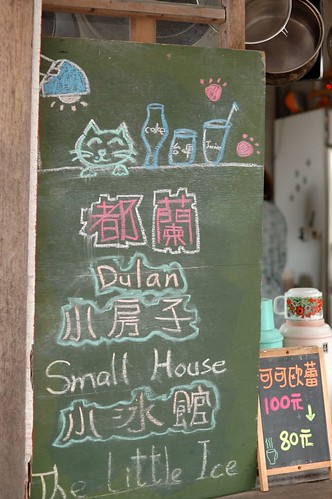 coke
台啤
Juice
都蘭
Dulan
小房子
Small House
小冰館
The Little Ice
可可歐蕾
100元
↓
80元